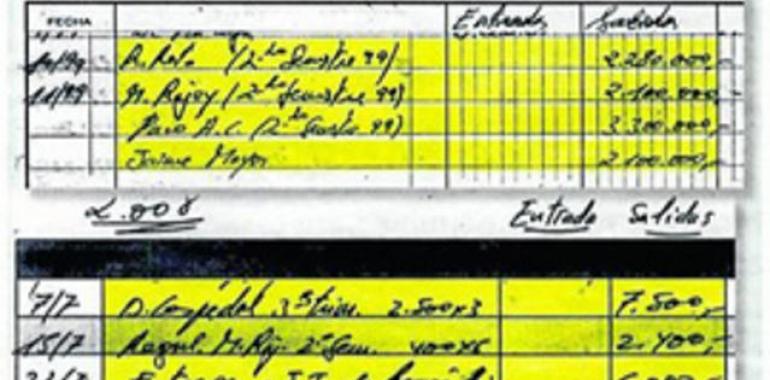 FECHA Entradas Salidas
10/99 R. Rato (2º Semestre 99) 2.280.000,-
11/99 M. Rajoy (2º Semestre 99) 2.100.000,-
Paco A.C. (2º Semestre 99) 3.300.000,-
Jaime Mayor 2.100.000,-
2.008 Entrada Salidas
7/7 D. Cospedal 3º trim. 2.500x3 7.500,-
15/7 M. Raj. 2º Sem. 400x6 2.400,-